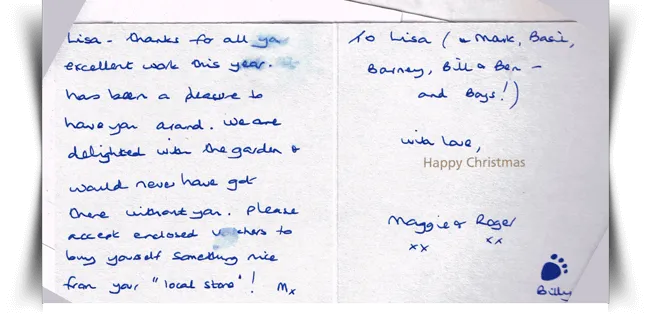 Lisa - thanks for all yr
excellent work this year.
has been a pleasure to
have you around. We are
delighted with the garden &
would never have got
there without you. Please
accept enclosed vouchers to
buy yourself something nice
from your "local store"! Mx
To Lisa (& Mark, Basil,
Barney, Bill & Ben -
and Boys!)
with love,
Happy Christmas
Maggie & Roger
xx xx
Billy